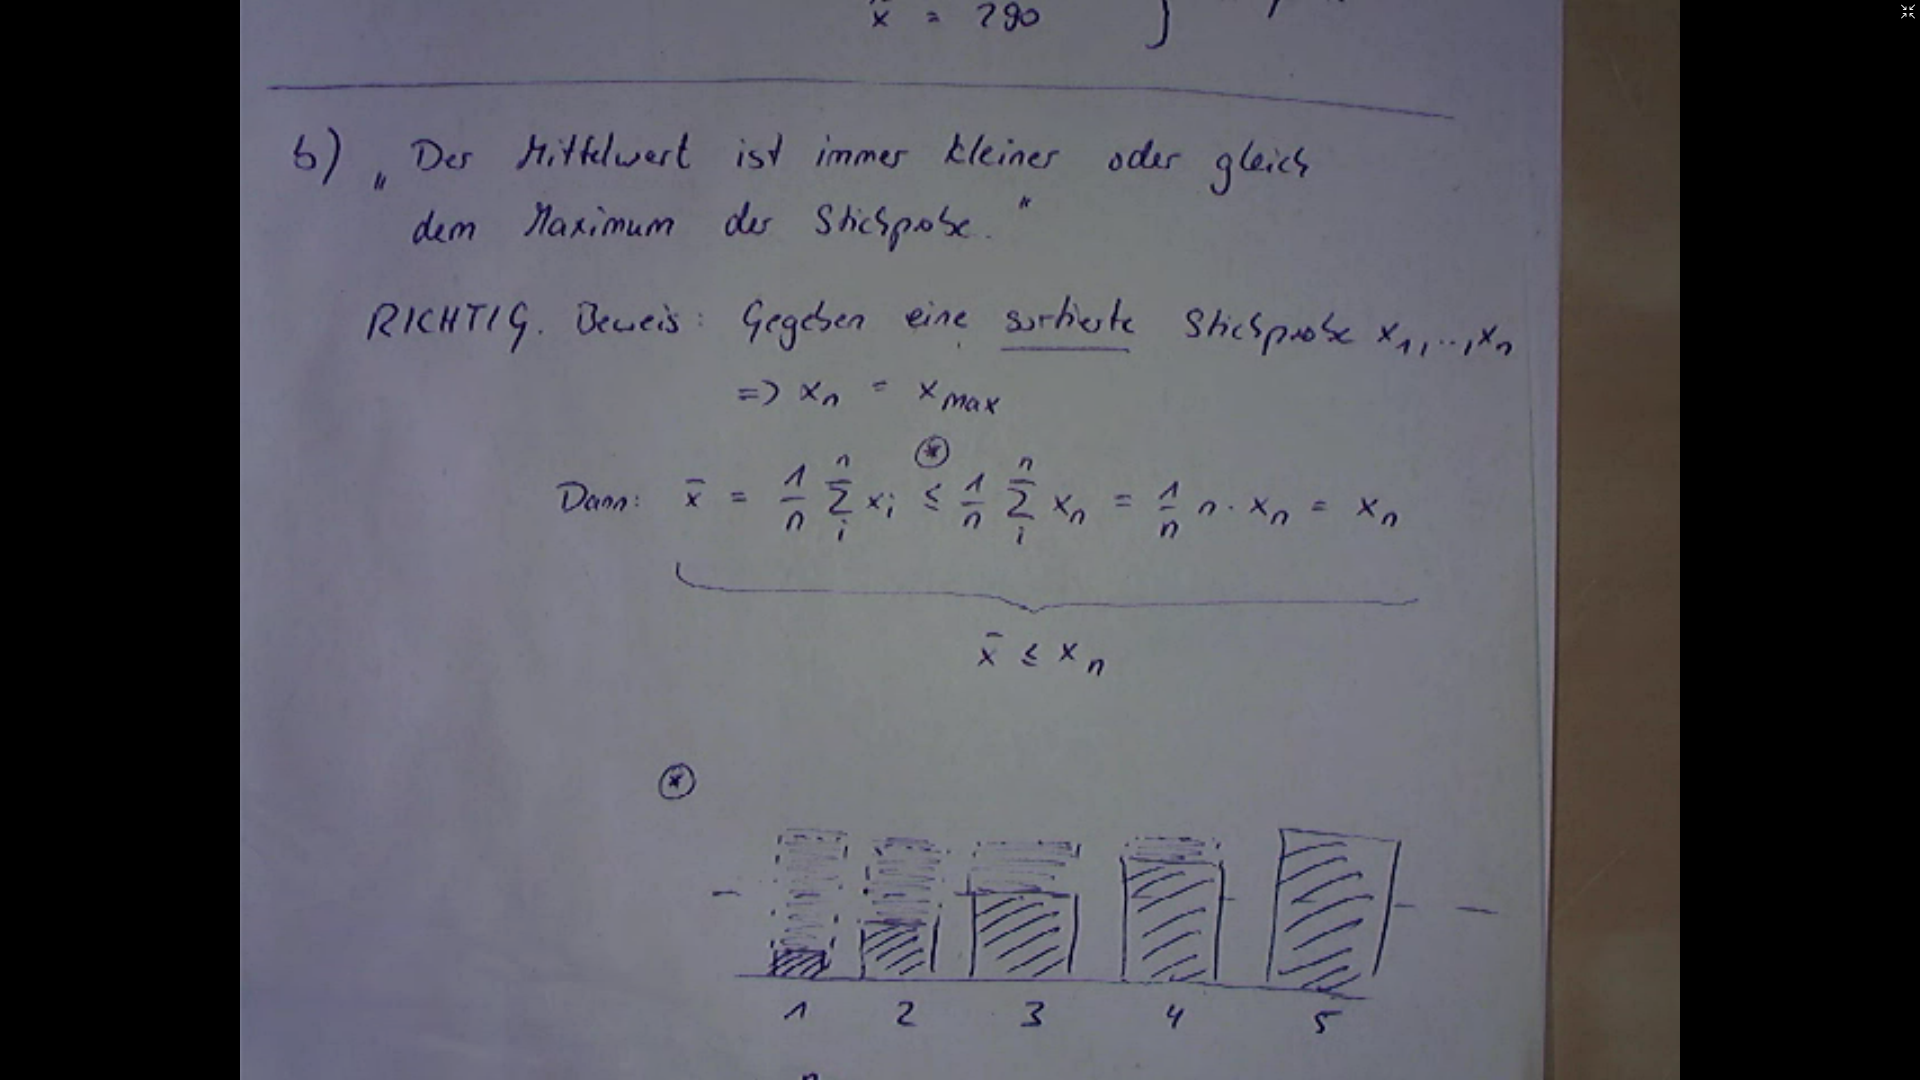 x̄ = 290
b) „Der Mittelwert ist immer kleiner oder gleich
dem Maximum der Stichprobe."
RICHTIG. Beweis: Gegeben eine sortierte Stichprobe x₁,..,xₙ
=> xₙ = x_max
⊛
Dann: x̄ = 1/n ∑ᵢⁿ xᵢ ≤ 1/n ∑ᵢⁿ xₙ = 1/n n · xₙ = xₙ
x̄ ≤ xₙ
⊛
1 2 3 4 5